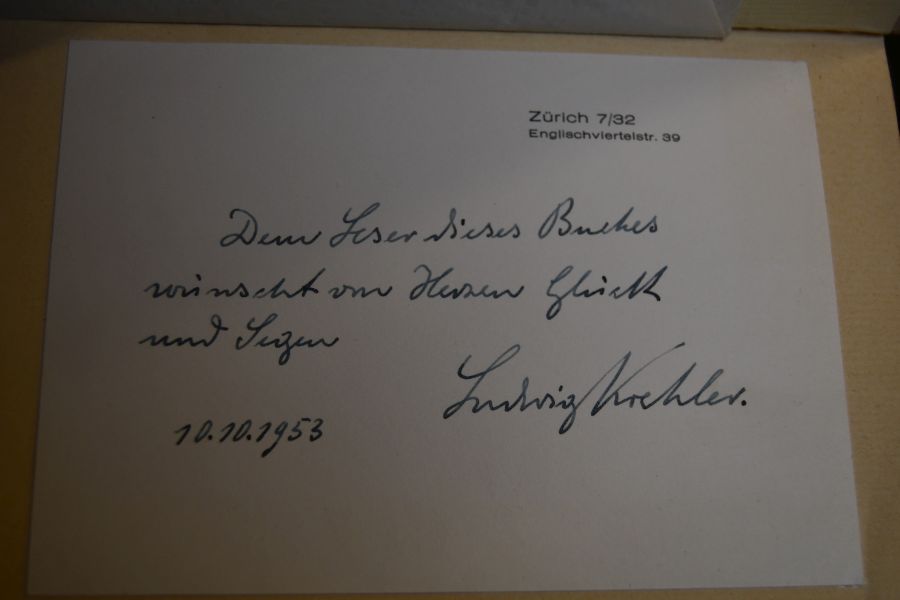 Zürich 7/32
Englischviertelstr. 39
Dem Leser dieses Buches
wünscht von Herzen Glück
und Segen
Ludwig Koehler.
10.10.1953